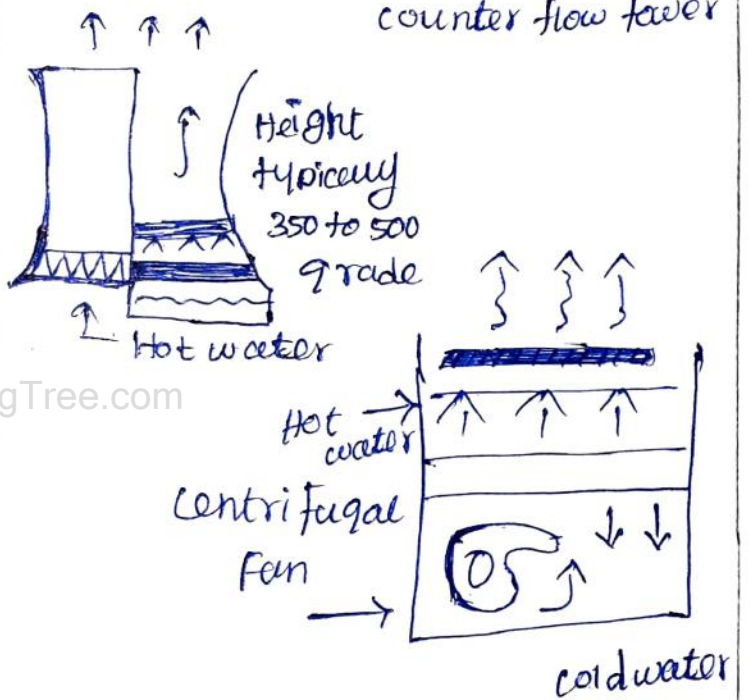 counter flow tower
Height
typiceuy
350 to 500
grade
Hot water
gTree.com
Hot
water
Centrifugal
Fan
cold water